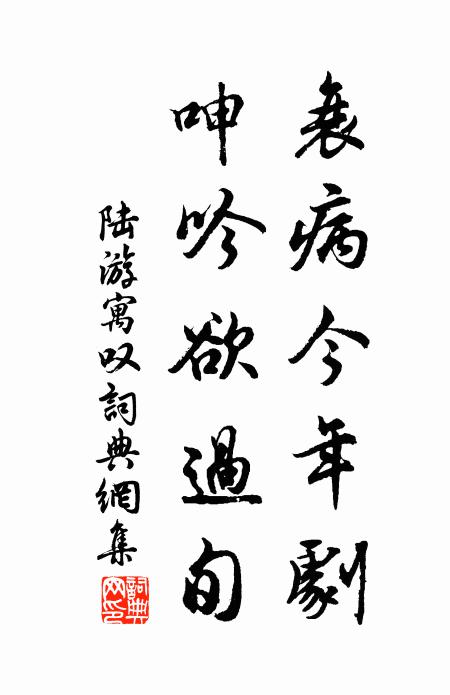 衰病今年劇
呻吟欲過旬
陆游寓叹詞典網集
詞典网印